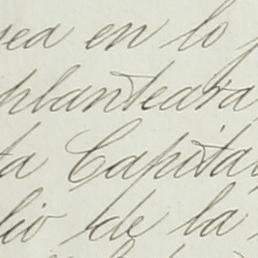 sea en lo p
planteara
ta Capital
lio de la